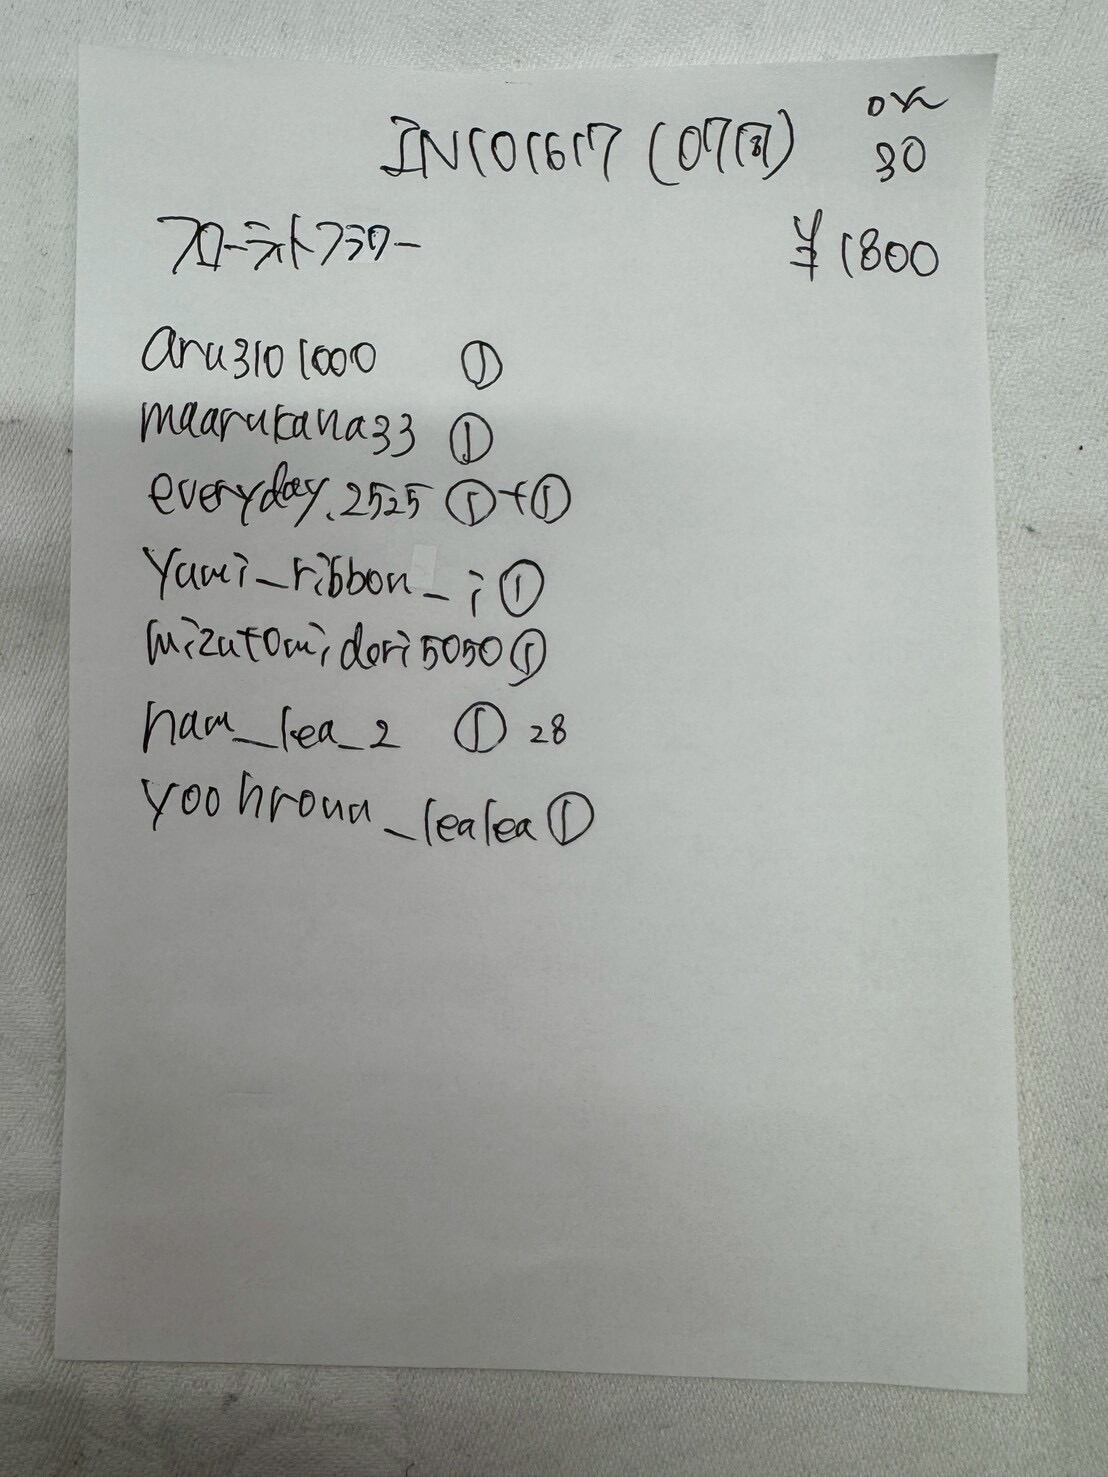 IN101617 (0717)
30
フローライトフラワー
¥1800
aru3101000 ①
maarukana33 ①
everyday.2525 ①+①
yumi_ribbon_i ①
mizutomidori5050 ①
ham_lea_2 ① 28
yoohroun_lealea ①